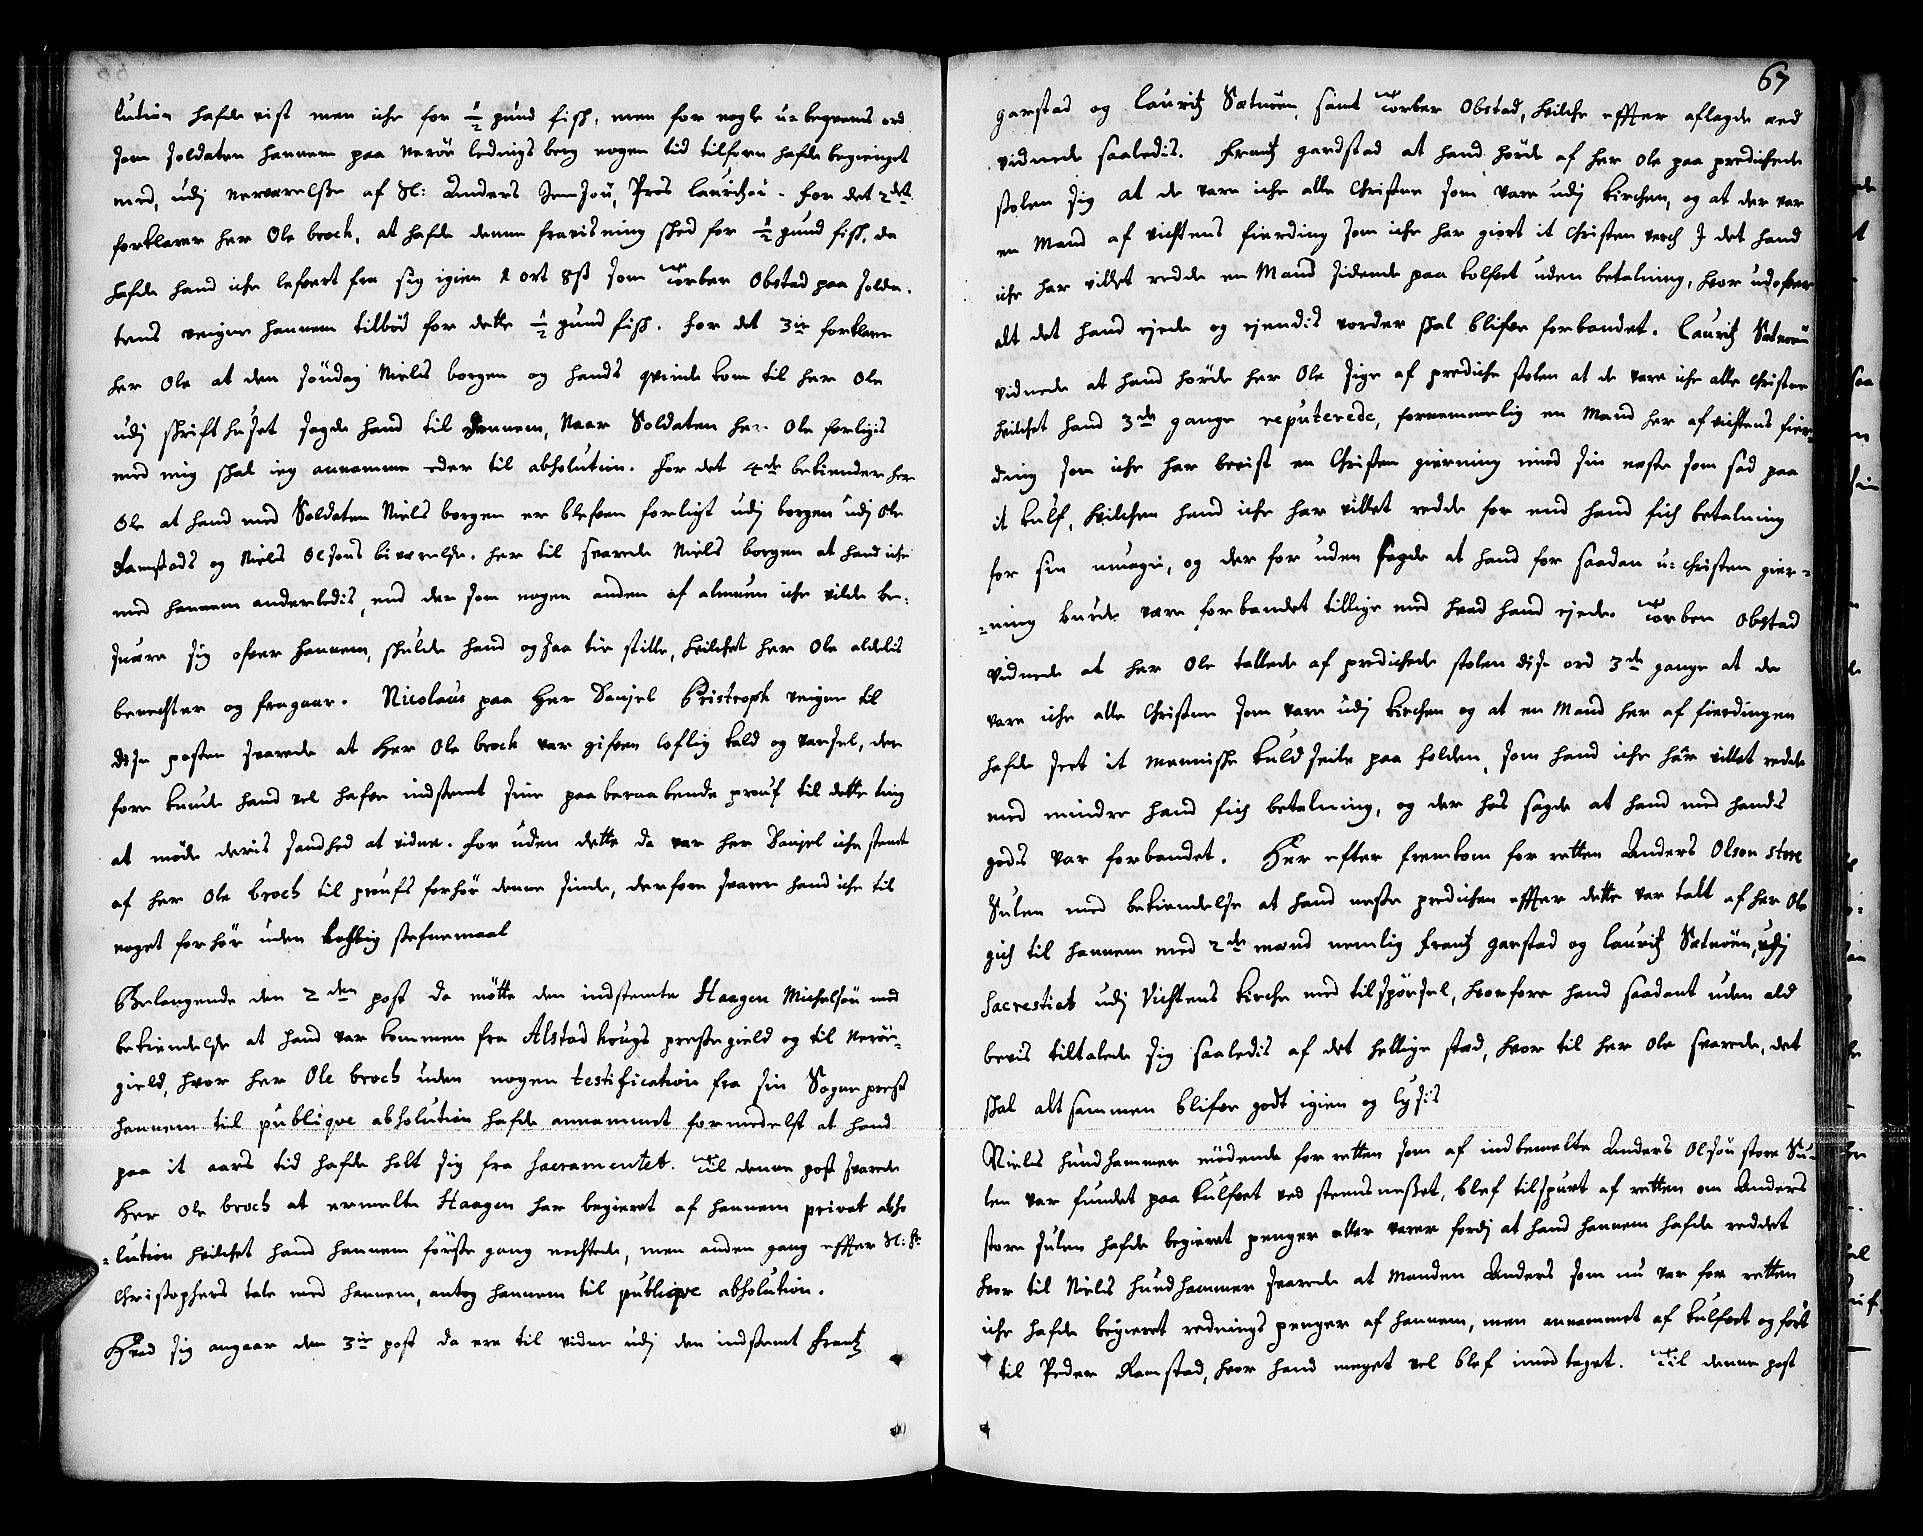 lution hafde vist men iche for ½ pund fisk, men for nogle u-beqvems ord
som soldaten hannem paa Nerøe ledings berg nogen tid tilforn hafde begienget
med, udj nerverelse af Sl: Anders Jensøn, Pros Lauritzøn. For det 2det
forklarer her Ole broch, at hafde denne fraviisning skeed for ½ pund fisk, da
hafde hand iche lefvert fra sig igien 1 ort 8ß som Torber Obstad paa solda-
tens veigne hannem tilbød for dette ½ pund fisk. For det 3ie forklarer
her Ole at den søndag Niels borgen og hands qvinde kom til her Ole
udj skriftehuset sagde hand til hannem, Naar Soldaten her Ole forligis
med mig skal ieg annamme eder til abholution. For det 4de bekiender her
Ole at hand med Soldaten Niels borgen er blefven forligt udj borgen udj Ole
Ramstads og Niels Olsøns biværelse. her til svarede Niels borgen at hand iche
med hannem anderledis, end der som nogen anden af almuen iche vilde be-
suære sig ofver hannem, skulde hand og saa tie stille, hvilchet her Ole aldelis
benechter og fragaar. Nicolaus paa Her Danjel Bristroph veigne til
disse poster svarede at Her Ole broch var gifven loflig kald og varsel, der
fore kunde hand vel hafve indstemt sine paaberaabende prouf til dette ting
at møde deris sandhed at vidne. For uden dette da var her Danjel iche stemt
af her Ole broch til proufs forhør denne sinde, derfore svarer hand iche til
noget forhør uden lovlig stefnemaal
Belangende den 2den post da møtte den indstemte Haagen Michelsøn med
bekiendelse at hand var kommen fra Alstadhougs prestegield og til Nerøe-
gield, hvor her Ole broch uden nogen testification fra sin Sogneprest
hannem til publiqve abholution hafde annammet formedelst at hand
paa it aars tid hafde holt sig fra sacramentet. Til denne post svarede
Her Ole broch at ermelte Haagen har begieret af hannem privat abso
-lution hvilchet hand hannem første gang nechtede, men anden gang effter Sl: Hr:
Christophers tale med hannem, antog hannem til publiqve abholution.
Hvad sig angaar den 3ie post da ere til vidne udj den indstemt Frantz

67
garstad og Lauritz Sætnøen, samt Torber Obstad, hvilche effter aflagde eed
vidnede saaledis. Frantz gardstad at hand hørde af her Ole paa predichede
stolen sig at de vare iche alle Christne som vare udj kirchen, og at der var
en Mand af vichtens fierding som iche har giort it Christen verch J det hand
iche har villet redde en Mand sidende paa kolfvet uden betalning, hvor udofver
alt det hand ejede og ejendis vorder skal blifve forbandet. Lauritz Sætnøen
vidnede at hand hørde her Ole sige af prediche stolen at de vare iche alle Christne
hvilchet hand 3de gange reputerede, fornemmelig en Mand her af vichtens fier-
ding som iche har beviist en Christen gierning imod sin neste som sad paa
it kulf, hvilchen hand iche har villet redde før end hand fich betalning
for sin umage, og der for uden sagde at hand for saadan u-christen gier-
-ning burde være forbandet tillige med hvad hand ejede. Torben Obstad
vidnede at her Ole tallede af predichede stolen disse ord 3de gange at de
vare iche alle Christne som vare udj kirchen og at en Mand her af fierdingen
hafde seet it menniske kuldseile paa folden, som hand iche har villet redde
med mindre hand fich betalning, og der hos sagde at hand med hands
gods var forbandet. Her efter fremkom for retten Anders Olsøn store
Sulen med bekiendelse at hand neste predichen effter dette var talt af her Ole
gich til hannem med 2de mænd nemlig Frantz garstad og Lauritz Sætnøen, udj
Sacrestiet udj Vichtens kirche med tilspørsel, hvorfore hand saadant uden ald
bevis tiltalede sig saaledis af det hellige stæd, hvor til her Ole svarede, det
skal altsammen blifve godt igien og lysis
Niels hundhammer mødende for retten som af indbemelte Anders Olsøn store Su-
len var fundet paa kulfvet ved stensneset, blef tilspurt af retten om Anders
store sulen hafde begieret penger eller varer fordj at hand hannem hafde reddet
hvor til Niels hundhammer svarede at Manden Anders som nu var for retten
iche hafde begieret rednings penger af hannem, men annammet af kulfvet og ført
til Peder Ramstad, hvor hand meget vel blef imodtaget. Til denne post